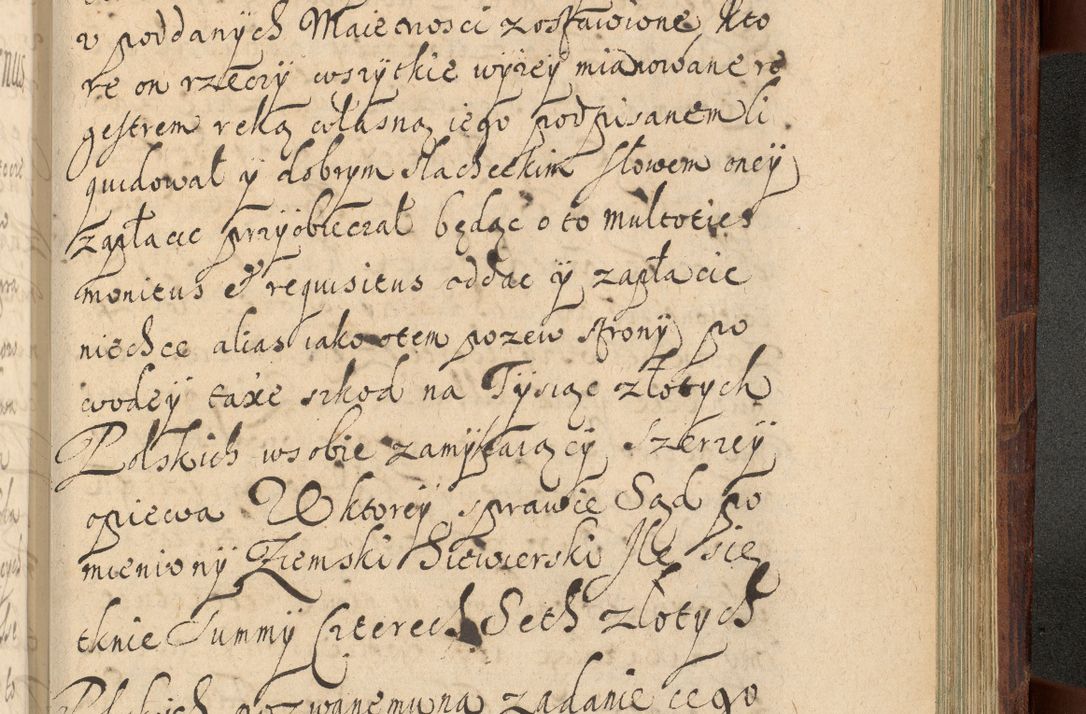 v poddanych Maiętnosci zostawione, kto
re on rzeczÿ wszÿtkie wÿżeÿ mianowane re
gestrem ręką własną iego podpisanem li
quidował ÿ dobrym slacheckim słowem oneÿ
zapłacic przÿobieczał będąc o to multoties
monitus et requisitus oddac ÿ zapłacic
niechce alias iako o tem pozew stronÿ po
wodeÿ taxę szkod na Tÿsiąc złotych
Polskich w sobie zamÿkaiącÿ szerzeÿ
opiewa W ktoreÿ sprawie Sąd po
mienionÿ Ziemski Siewierski Ile się
tknie Summÿ Czterech Seth złotych
Polskich pozwanemu na zadanie iego